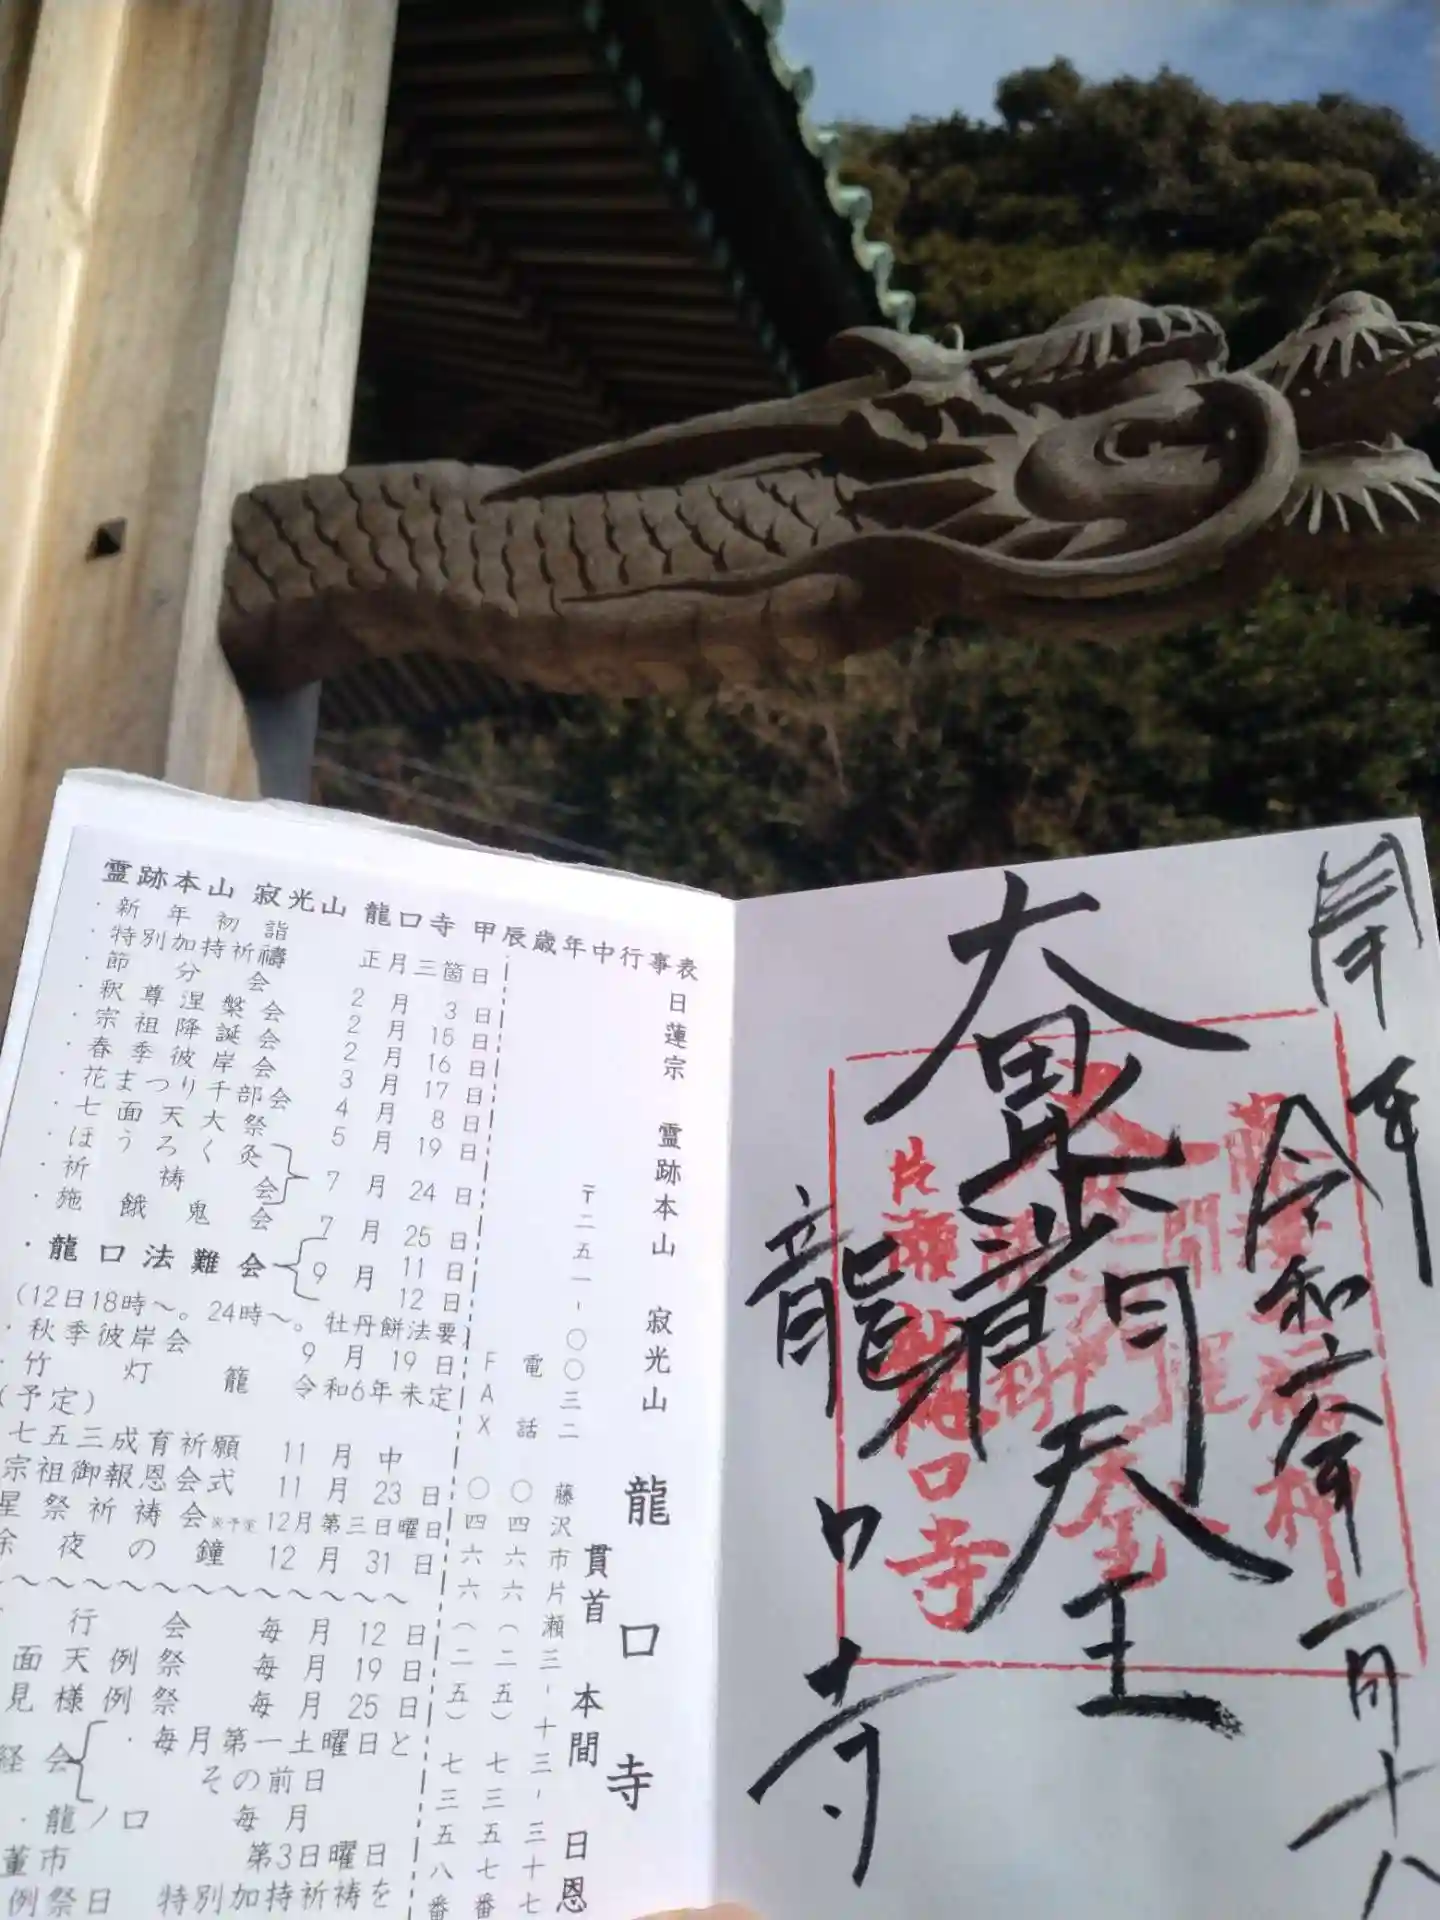 霊跡本山 寂光山 龍口寺 甲辰歳年中行事表
・新年初詣 正月三箇日
・特別加持祈禱
・節分会 2月3日
・釈尊涅槃会 2月15日
・宗祖降誕会 2月16日
・春季彼岸会 3月17日
・花まつり千部会 4月8日
・七面天大祭 5月19日
・ほうろく灸
・祈祷会 7月24日
・施餓鬼会 7月25日
・龍口法難会 9月11日
12日
(12日18時〜。24時〜。牡丹餅法要)
・秋季彼岸会 9月19日
・竹灯籠 令和6年未定
(予定)
七五三成育祈願 11月中
宗祖御報恩会式 11月23日
星祭祈祷会※予定 12月第三日曜日
夜の鐘 12月31日
行会 毎月12日
面天例祭 毎月19日
見様例祭 毎月25日
経会 ・毎月第一土曜日と
その前日
・龍ノ口 毎月
董市 第3日曜日
例祭日 特別加持祈祷を
日蓮宗 霊跡本山 寂光山 龍口寺
貫首 本間 日恩
〒二五一-〇〇三二 藤沢市片瀬三-十三-三十七
電話 〇四六六(二五)七三五七番
FAX 〇四六六(二五)七三五八番
開運
令和六年一月十八
大毘沙門天王
龍口寺
片瀬龍口寺